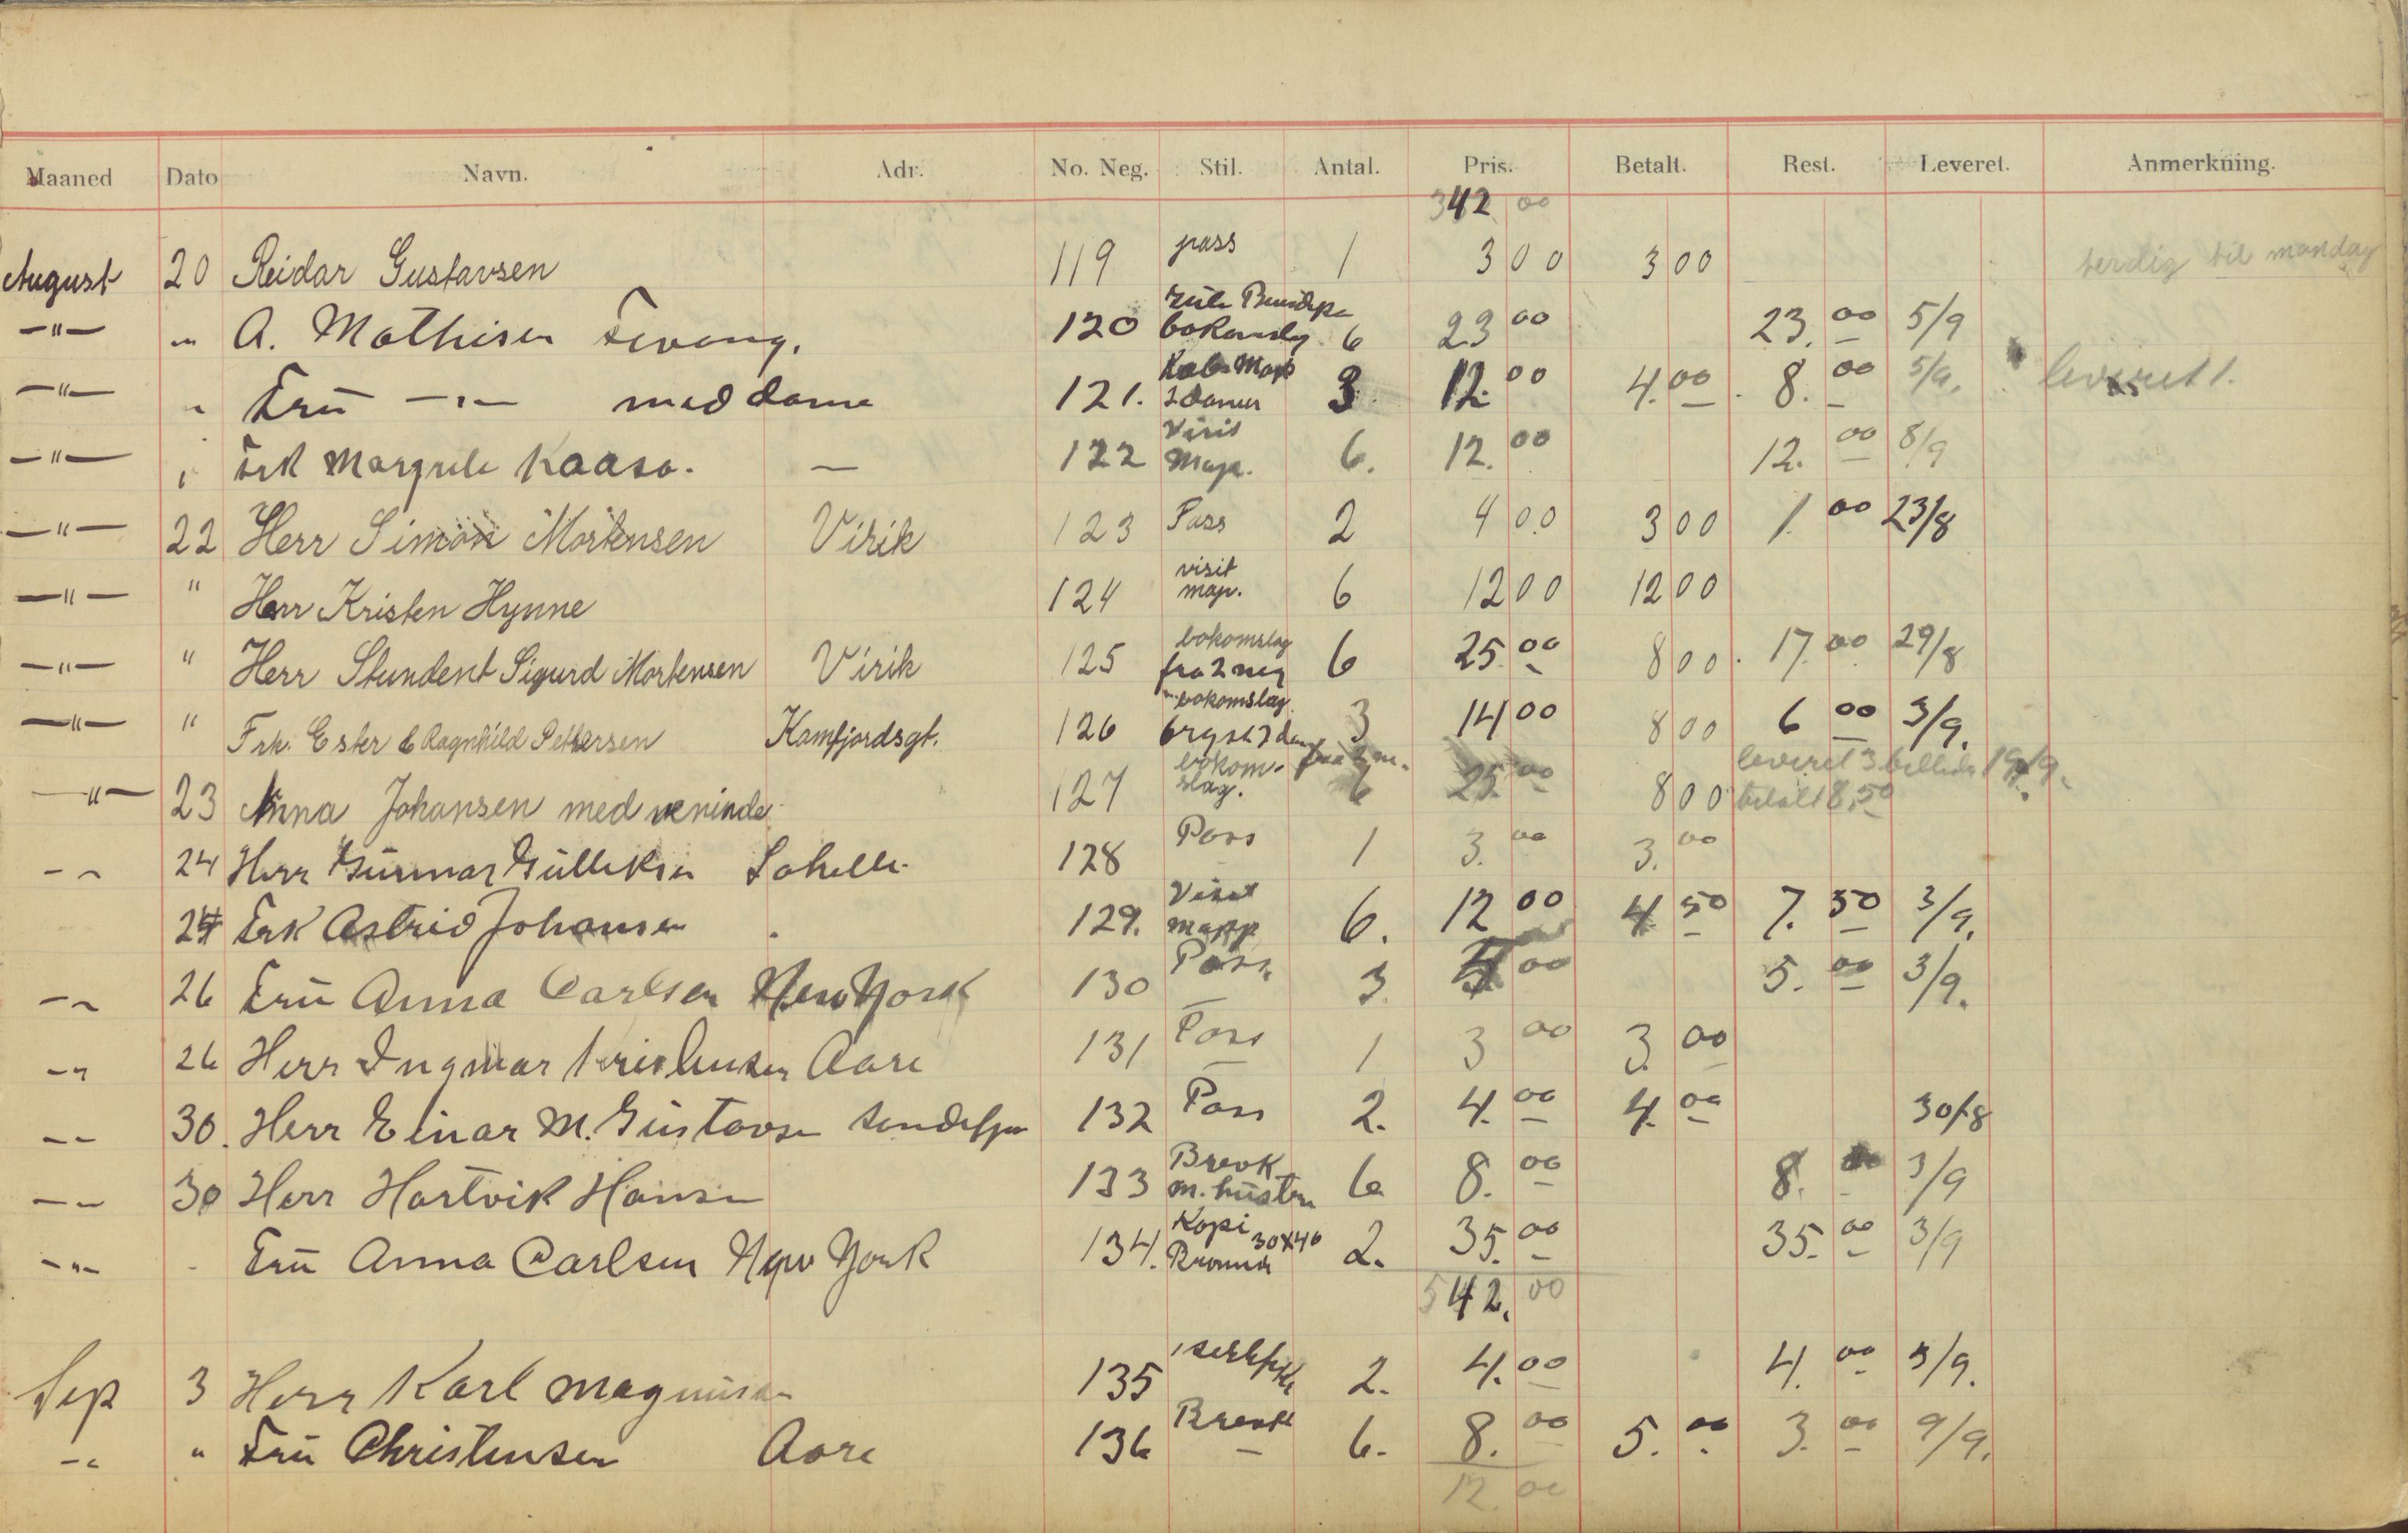 Maaned Dato Navn. Adr. No. Neg. Stil. Antal. Pris. Betalt. Rest. Leveret. Anmerkning.
342 00
August 20 Reidar Gustavsen 119 pass 1 3 00 3 00 ferdig til mandag
—"— " A. Mathisen 120 6 23 00 23. 00 5/9
—"— " Fru —"— med dame 121. 2 damer 3 12. 00 4. 00 8. 00 5/9. leveret 1.
—"— " Frk Kaasa. — 122 Visit Map. 6. 12. 00 12. 00 8/9
—"— 22 Herr Simon Mortensen Virik 123 Pass 2 4 00 3 00 1. 00 23/8
—"— " Herr Kristen Hynne 124 visit map. 6 12 00 12 00
—"— " Herr Stundent Sigurd Mortensen Virik 125 bokomslag fra 2 neg 6 25 00 8 00 17. 00 29/8
—"— " Frk. Ester & Ragnhild Pettersen Kamfjordsgt. 126 bokomslag 3 14 00 8 00 6 00 3/9.
—"— 23 Anna Johansen med veninde 127 bokomslag. 6 25 00 8 00 leveret 3 19/9. betalt 8,50
-"- 24 Herr Gunnar Gulliksen 128 Pass 1 3. 00 3. 00
24 Frk Astrid Johansen 129. Visit mapp 6. 12 00 4. 50 7. 50 3/9.
-"- 26 Fru Anna Carlsen New York 130 Pass 3. 5 00 5. 00 3/9.
-"- 26 Herr Ingmar Kristensen Aare 131 Pass 1 3 00 3. 00
-"- 30. Herr Einar M. Gustavsen 132 Pass 2. 4. 00 4. 00 30/8
-"- 30 Herr Hartvik Hansen 133 Brevk m. hustru 6 8. 00 8. 00 3/9
-"- Fru Anna Carlsen New York 134. Kopi 30x40 2. 35. 00 35. 00 3/9
542. 00
Sep 3 Herr Karl Magnussen 135 2. 4. 00 4. 00 3/9.
-"- " Fru Christensen Aare 136 Brevk 6. 8. 00 5. 00 3. 00 9/9.
12. 00